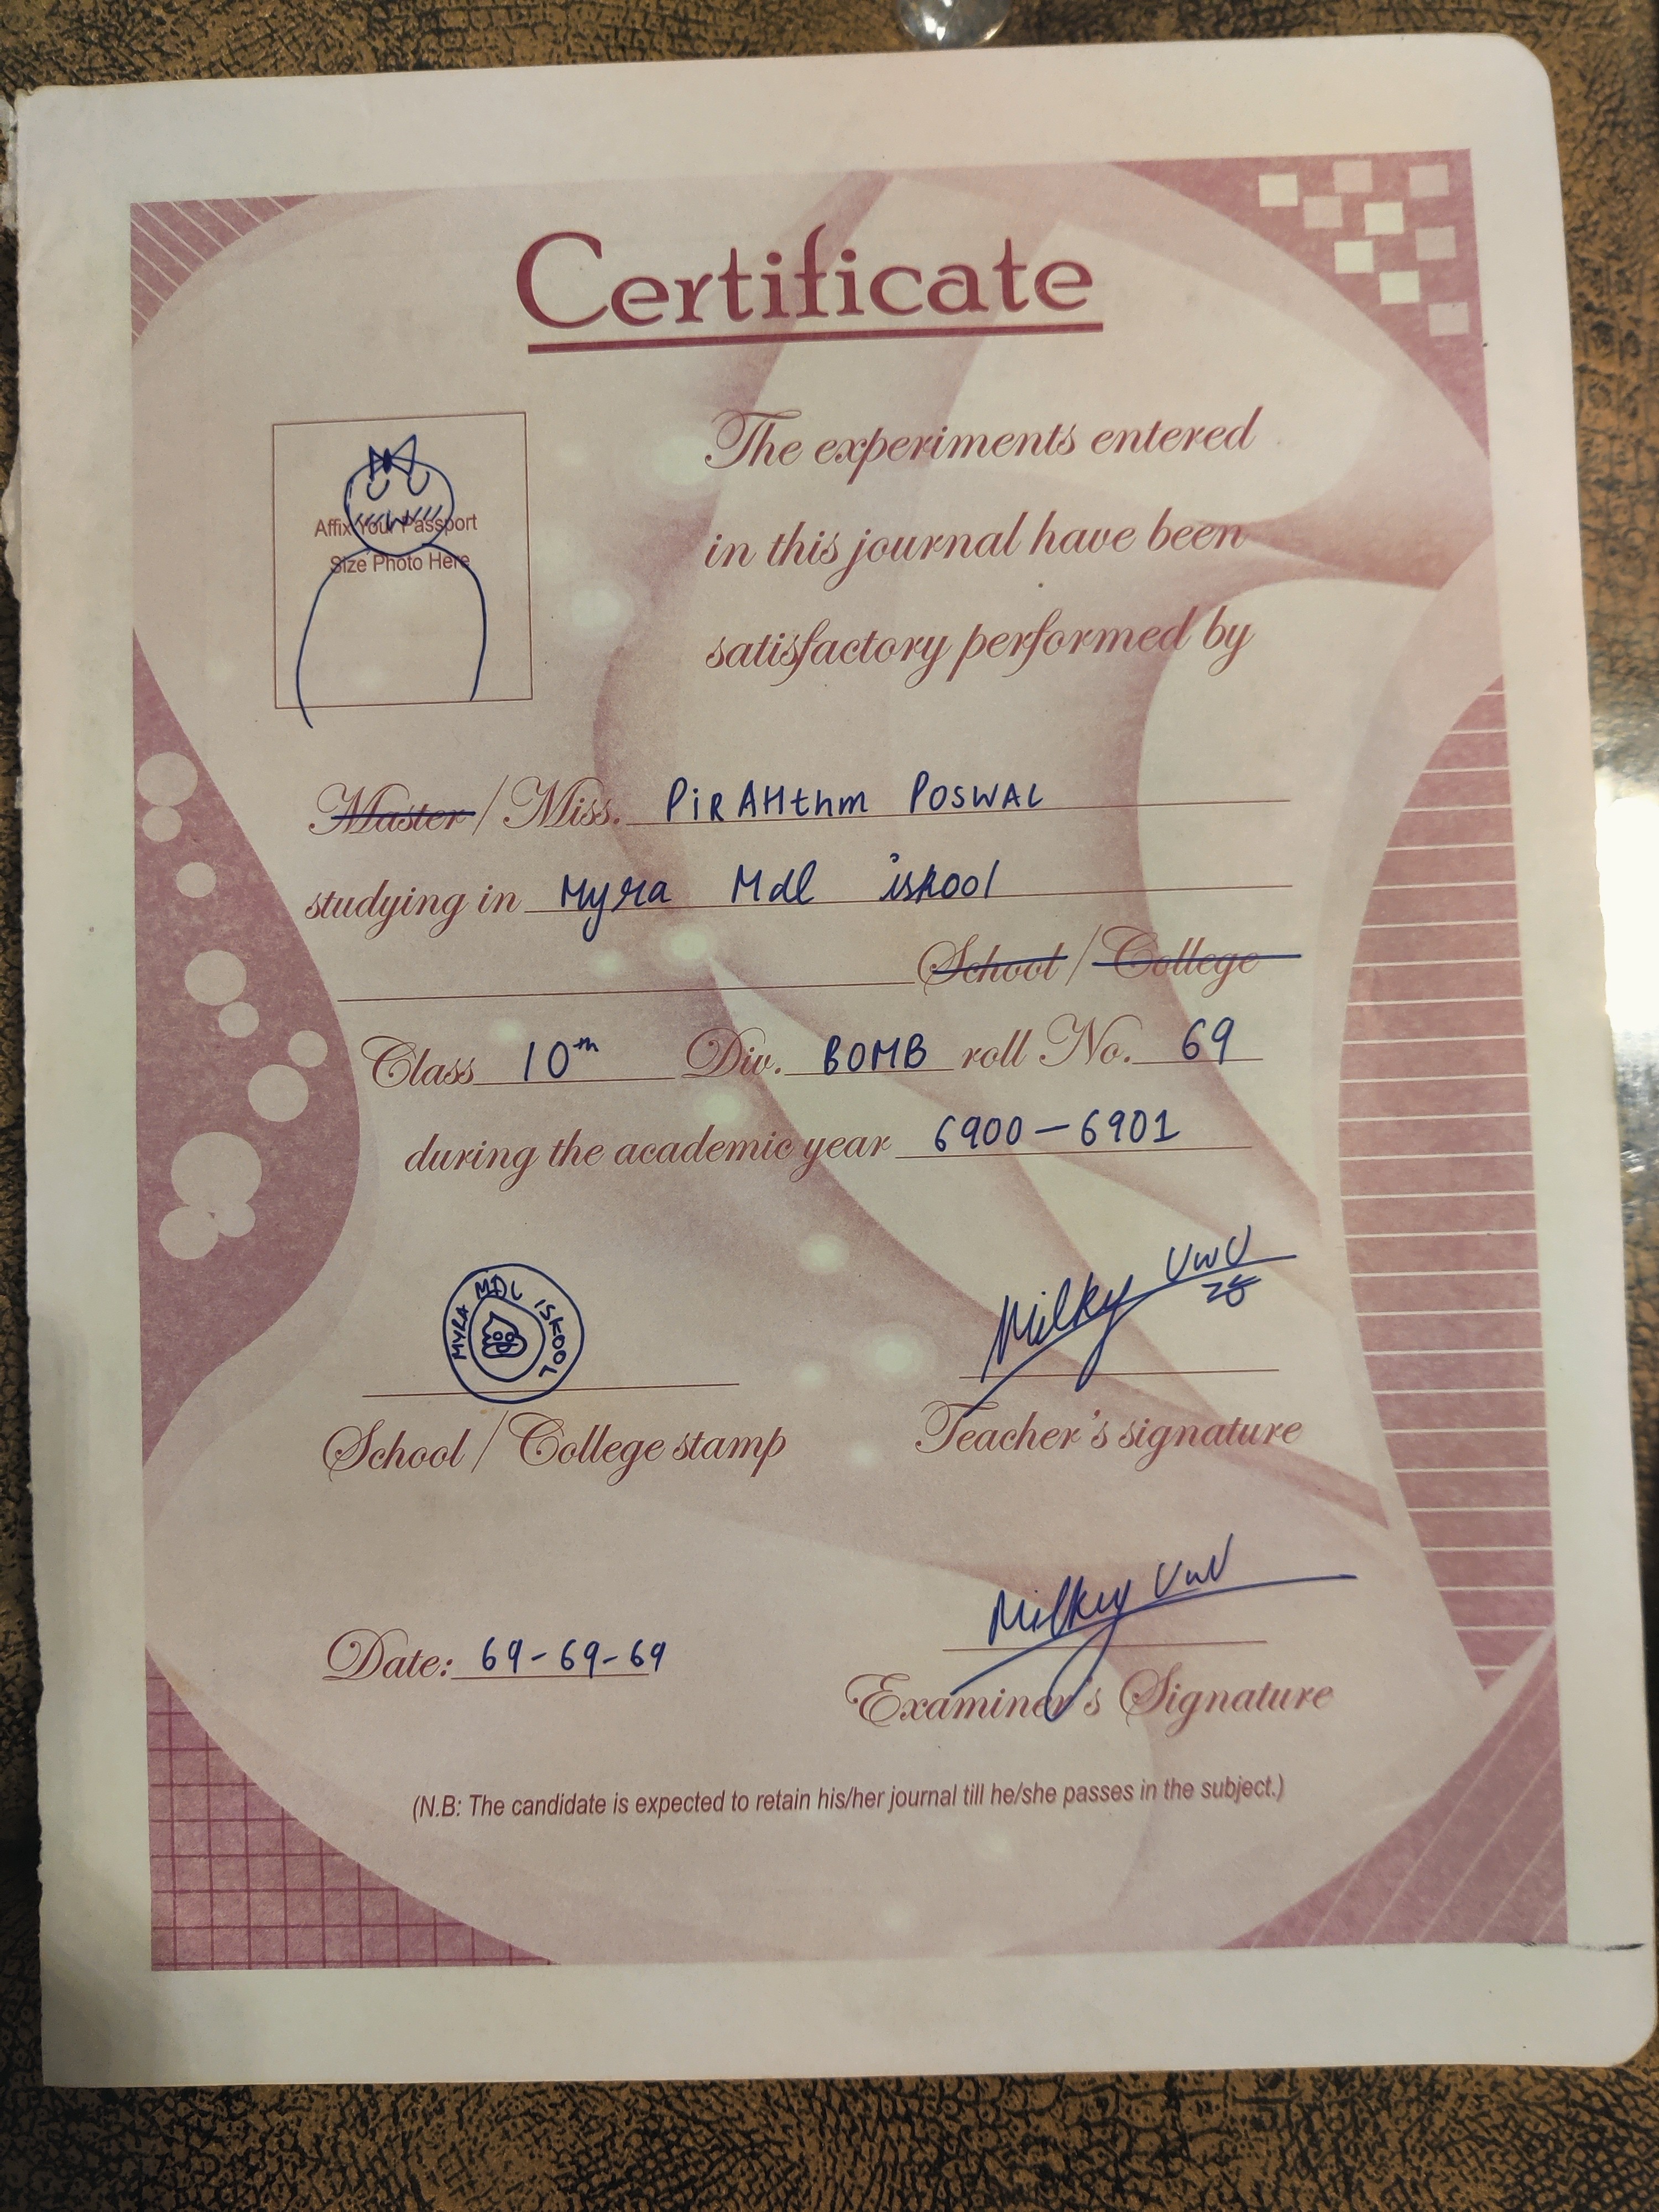 Certificate
Affix Your Passport
Size Photo Here
The experiments entered
in this journal have been
satisfactory performed by
Master / Miss. PiRAHthm POSWAL
studying in Myra Mdl iskool
School / College
Class 10th Div. BOMB roll No. 69
during the academic year 6900-6901
MYRA MDL ISKOOL
School / College stamp
Milky UwU
Teacher's signature
Date: 69-69-69
Milky UwU
Examiner's Signature
(N.B: The candidate is expected to retain his/her journal till he/she passes in the subject.)